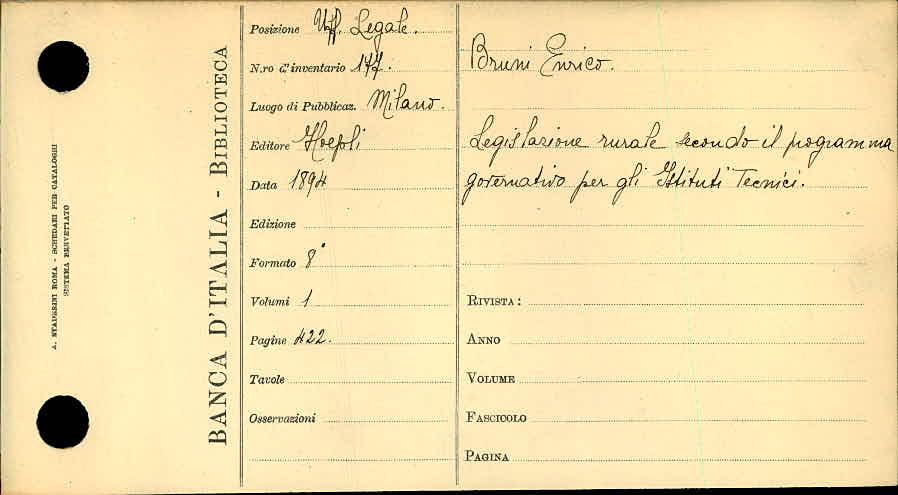 A. STADERINI ROMA - SCHEDARI PER CATALOGHI
SISTEMA BREVETTATO
BANCA D'ITALIA - BIBLIOTECA
Posizione Uff. Legale.
N.ro d'inventario 177.
Luogo di Pubblicaz. Milano.
Editore Hoepli
Data 1894
Edizione
Formato 8°
Volumi 1
Pagine 422.
Tavole
Osservazioni
Bruni Enrico.
Legislazione rurale secondo il programma
governativo per gli Istituti Tecnici.
RIVISTA:
ANNO
VOLUME
FASCICOLO
PAGINA